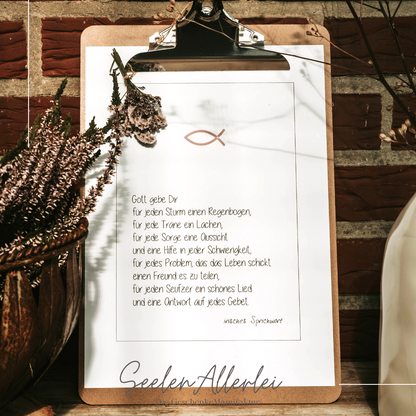 Gott gebe Dir
für jeden Sturm einen Regenbogen,
für jede Träne ein Lachen,
für jede Sorge eine Aussicht
und eine Hilfe in jeder Schwierigkeit,
für jedes Problem, das das Leben schickt
einen Freund es zu teilen,
für jeden Seufzer ein schönes Lied
und eine Antwort auf jedes Gebet.
irisches Sprichwort
SeelenAllerlei